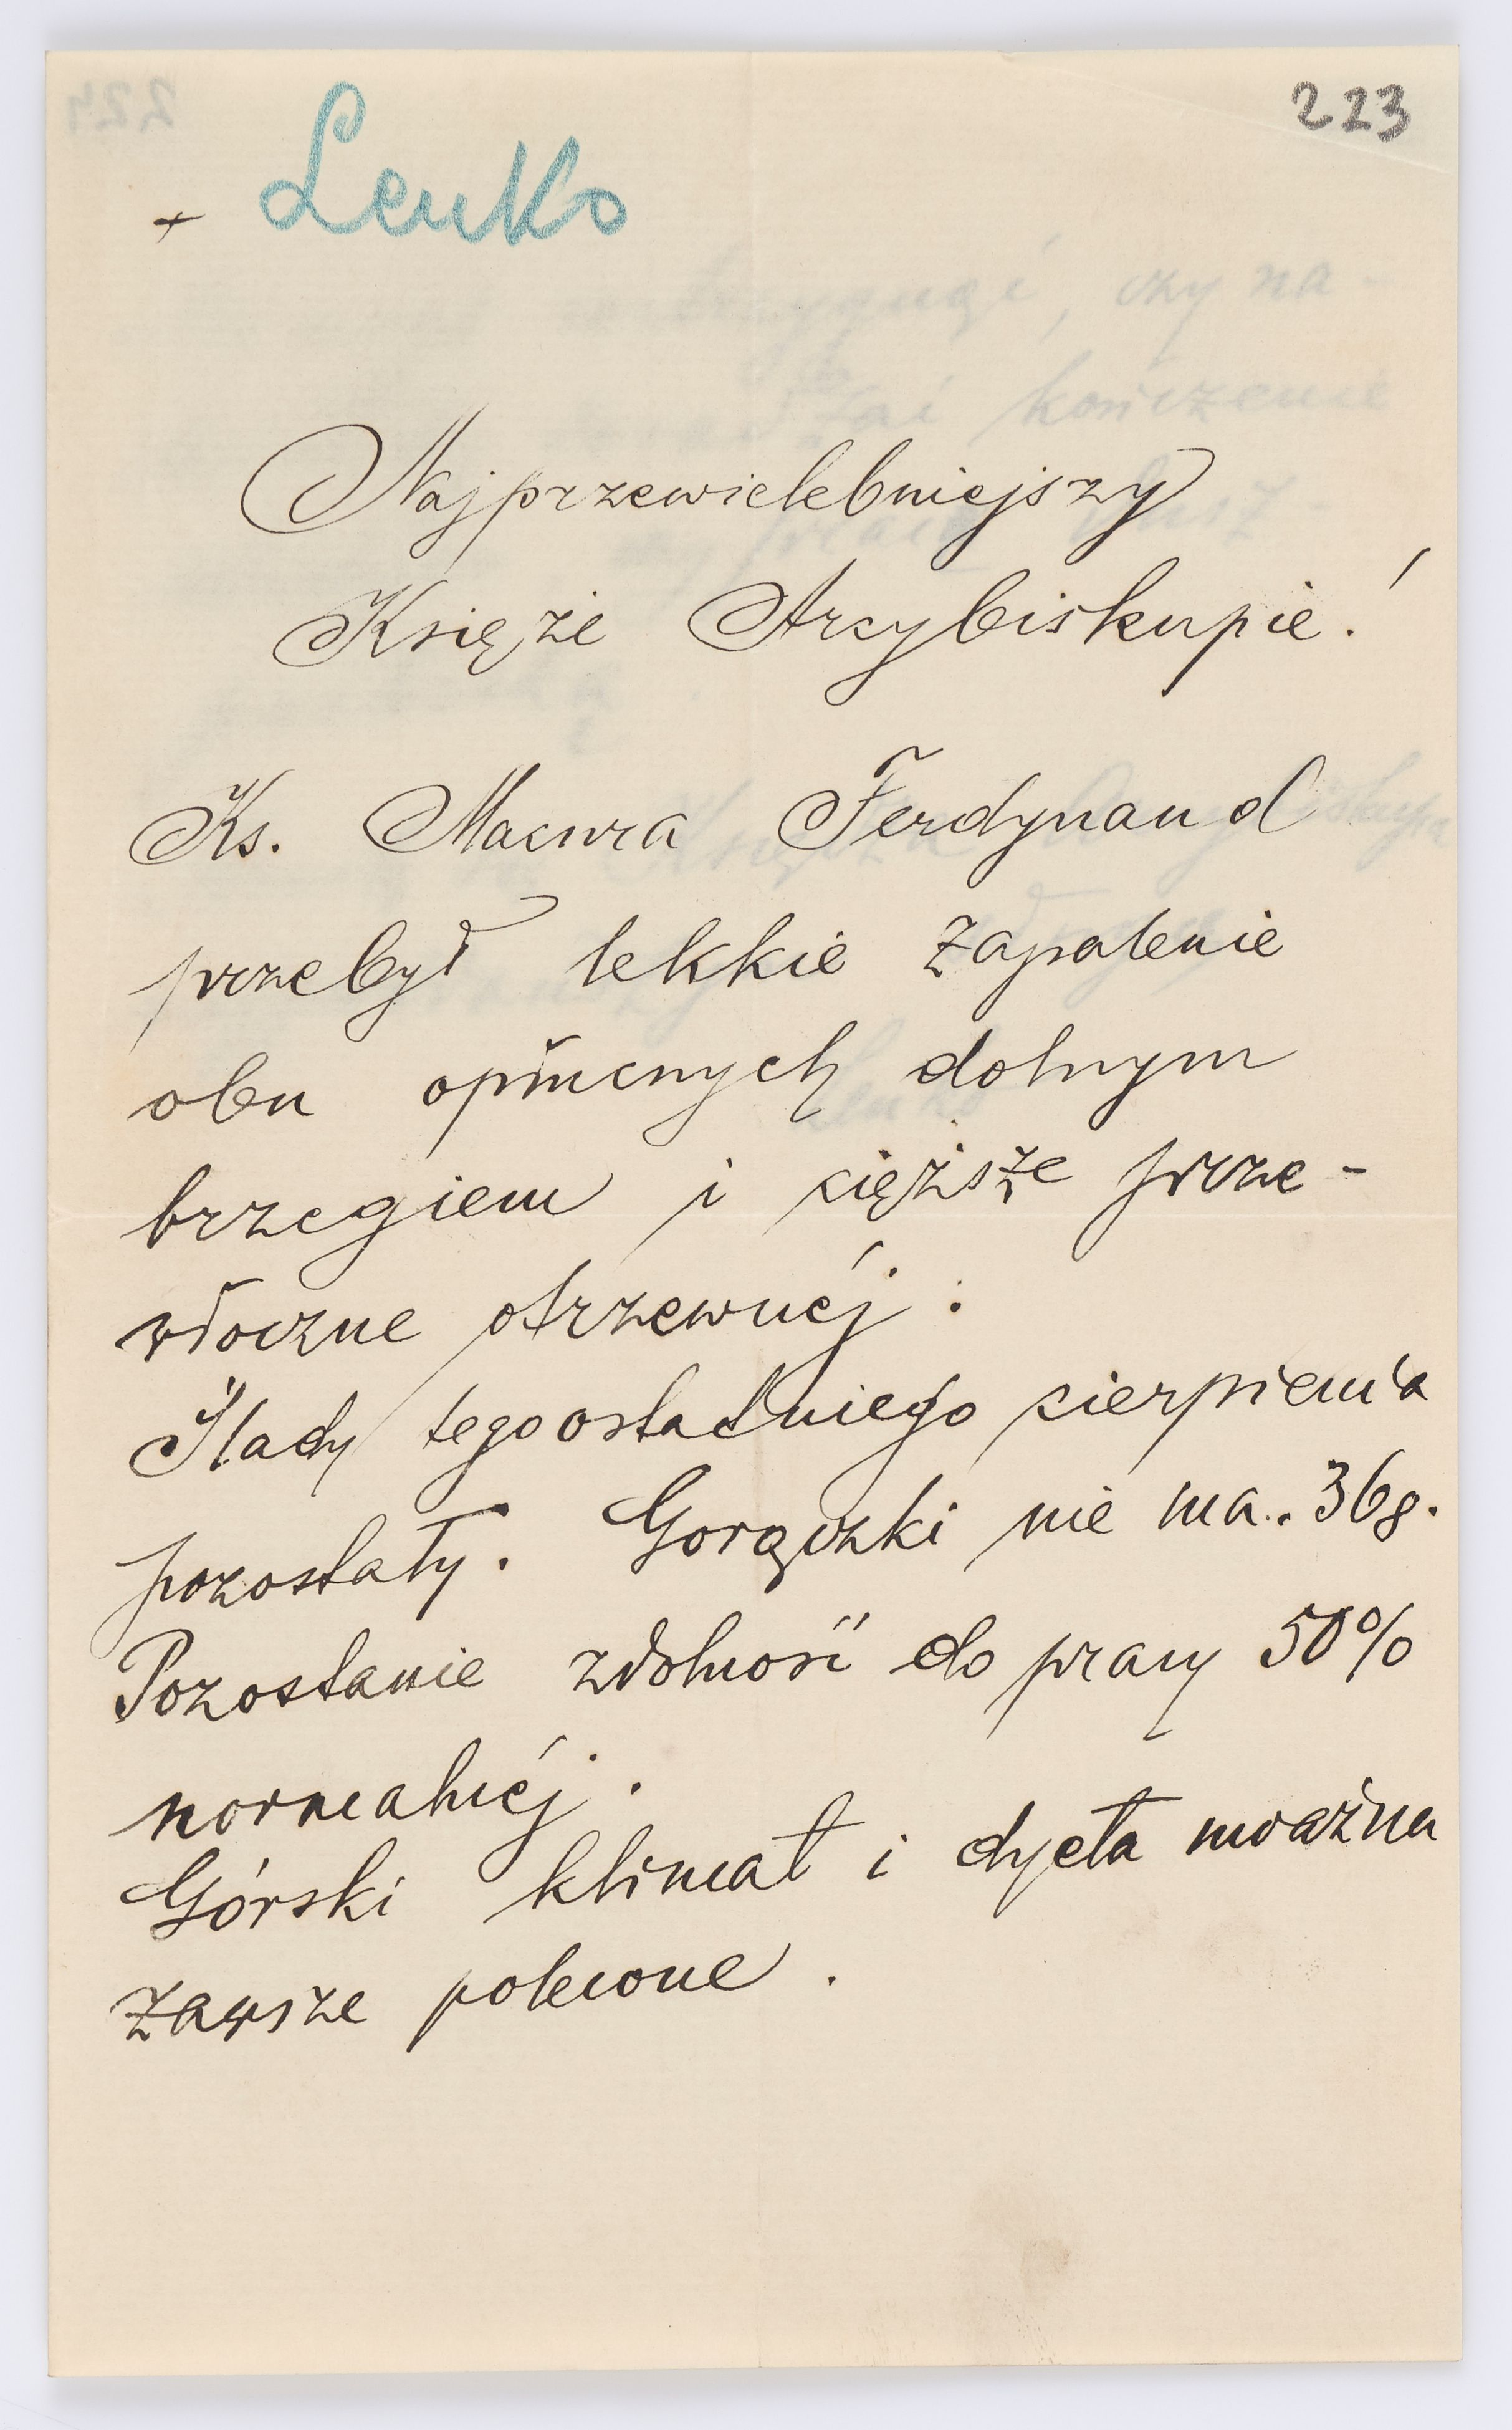 223
+ Lenko
Najprzewielebniejszy
Księże Arcybiskupie!
Ks. Macura Ferdynand
przebył lekkie zapalenie
obu opłucnych dolnym
brzegiem i cięższe prze-
włoczne otrzewnéj.
Ślady tego ostatniego cierpienia
pozostały. Gorączki nie ma. 36g.
Pozostanie zdolność do pracy 50%
normalnéj.
Górski klimat i dyeta uważna
zawsze polecone.